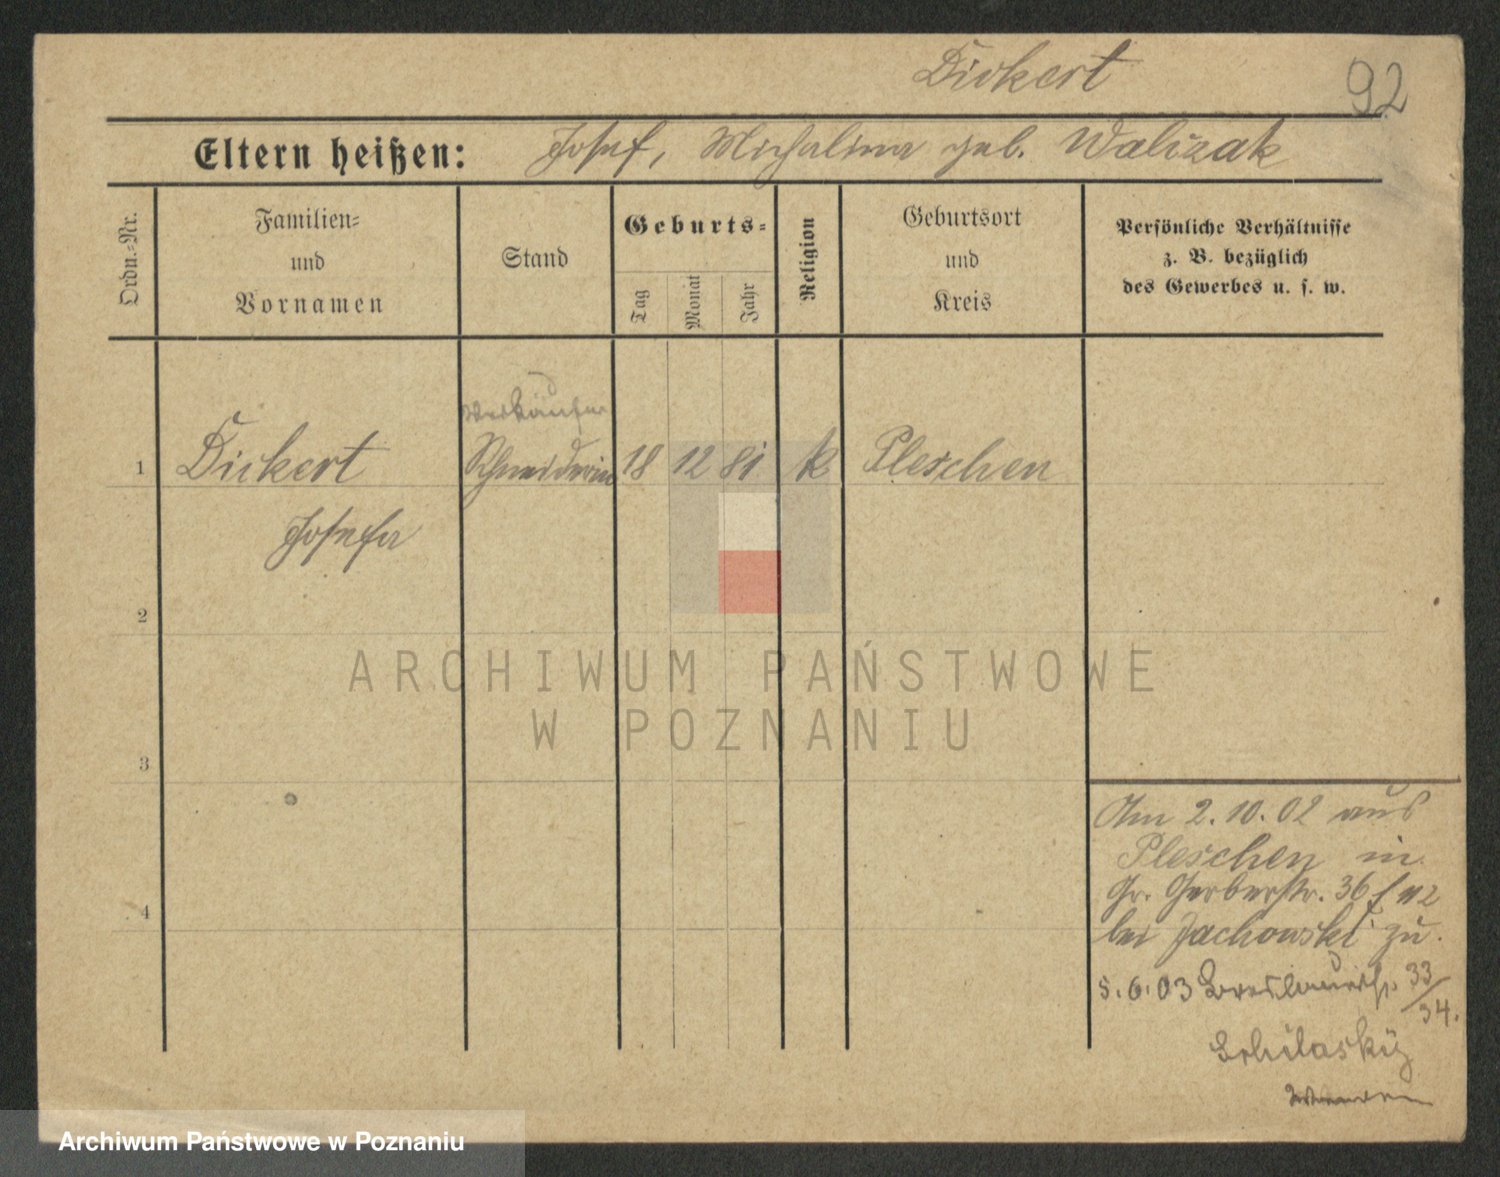 Dickert
92
Eltern heißen: Josef, Michalina geb. Walczak
Ordn.-Nr.
Familien-
und
Vornamen
Stand
Geburts-
Tag
Monat
Jahr
Religion
Geburtsort
und
Kreis
Persönliche Verhältnisse
z. B. bezüglich
des Gewerbes u. s. w.
Verkäufer
1 Dickert Schneiderin 18 12 81 k Pleschen
Josefa
2
3
4
ARCHIWUM PAŃSTWOWE
W POZNANIU
Am 2.10.02 aus
Pleschen in
Gr. Gerberstr. 36
bei Jachowski zu.
5.6.03 33/34.
Archiwum Państwowe w Poznaniu